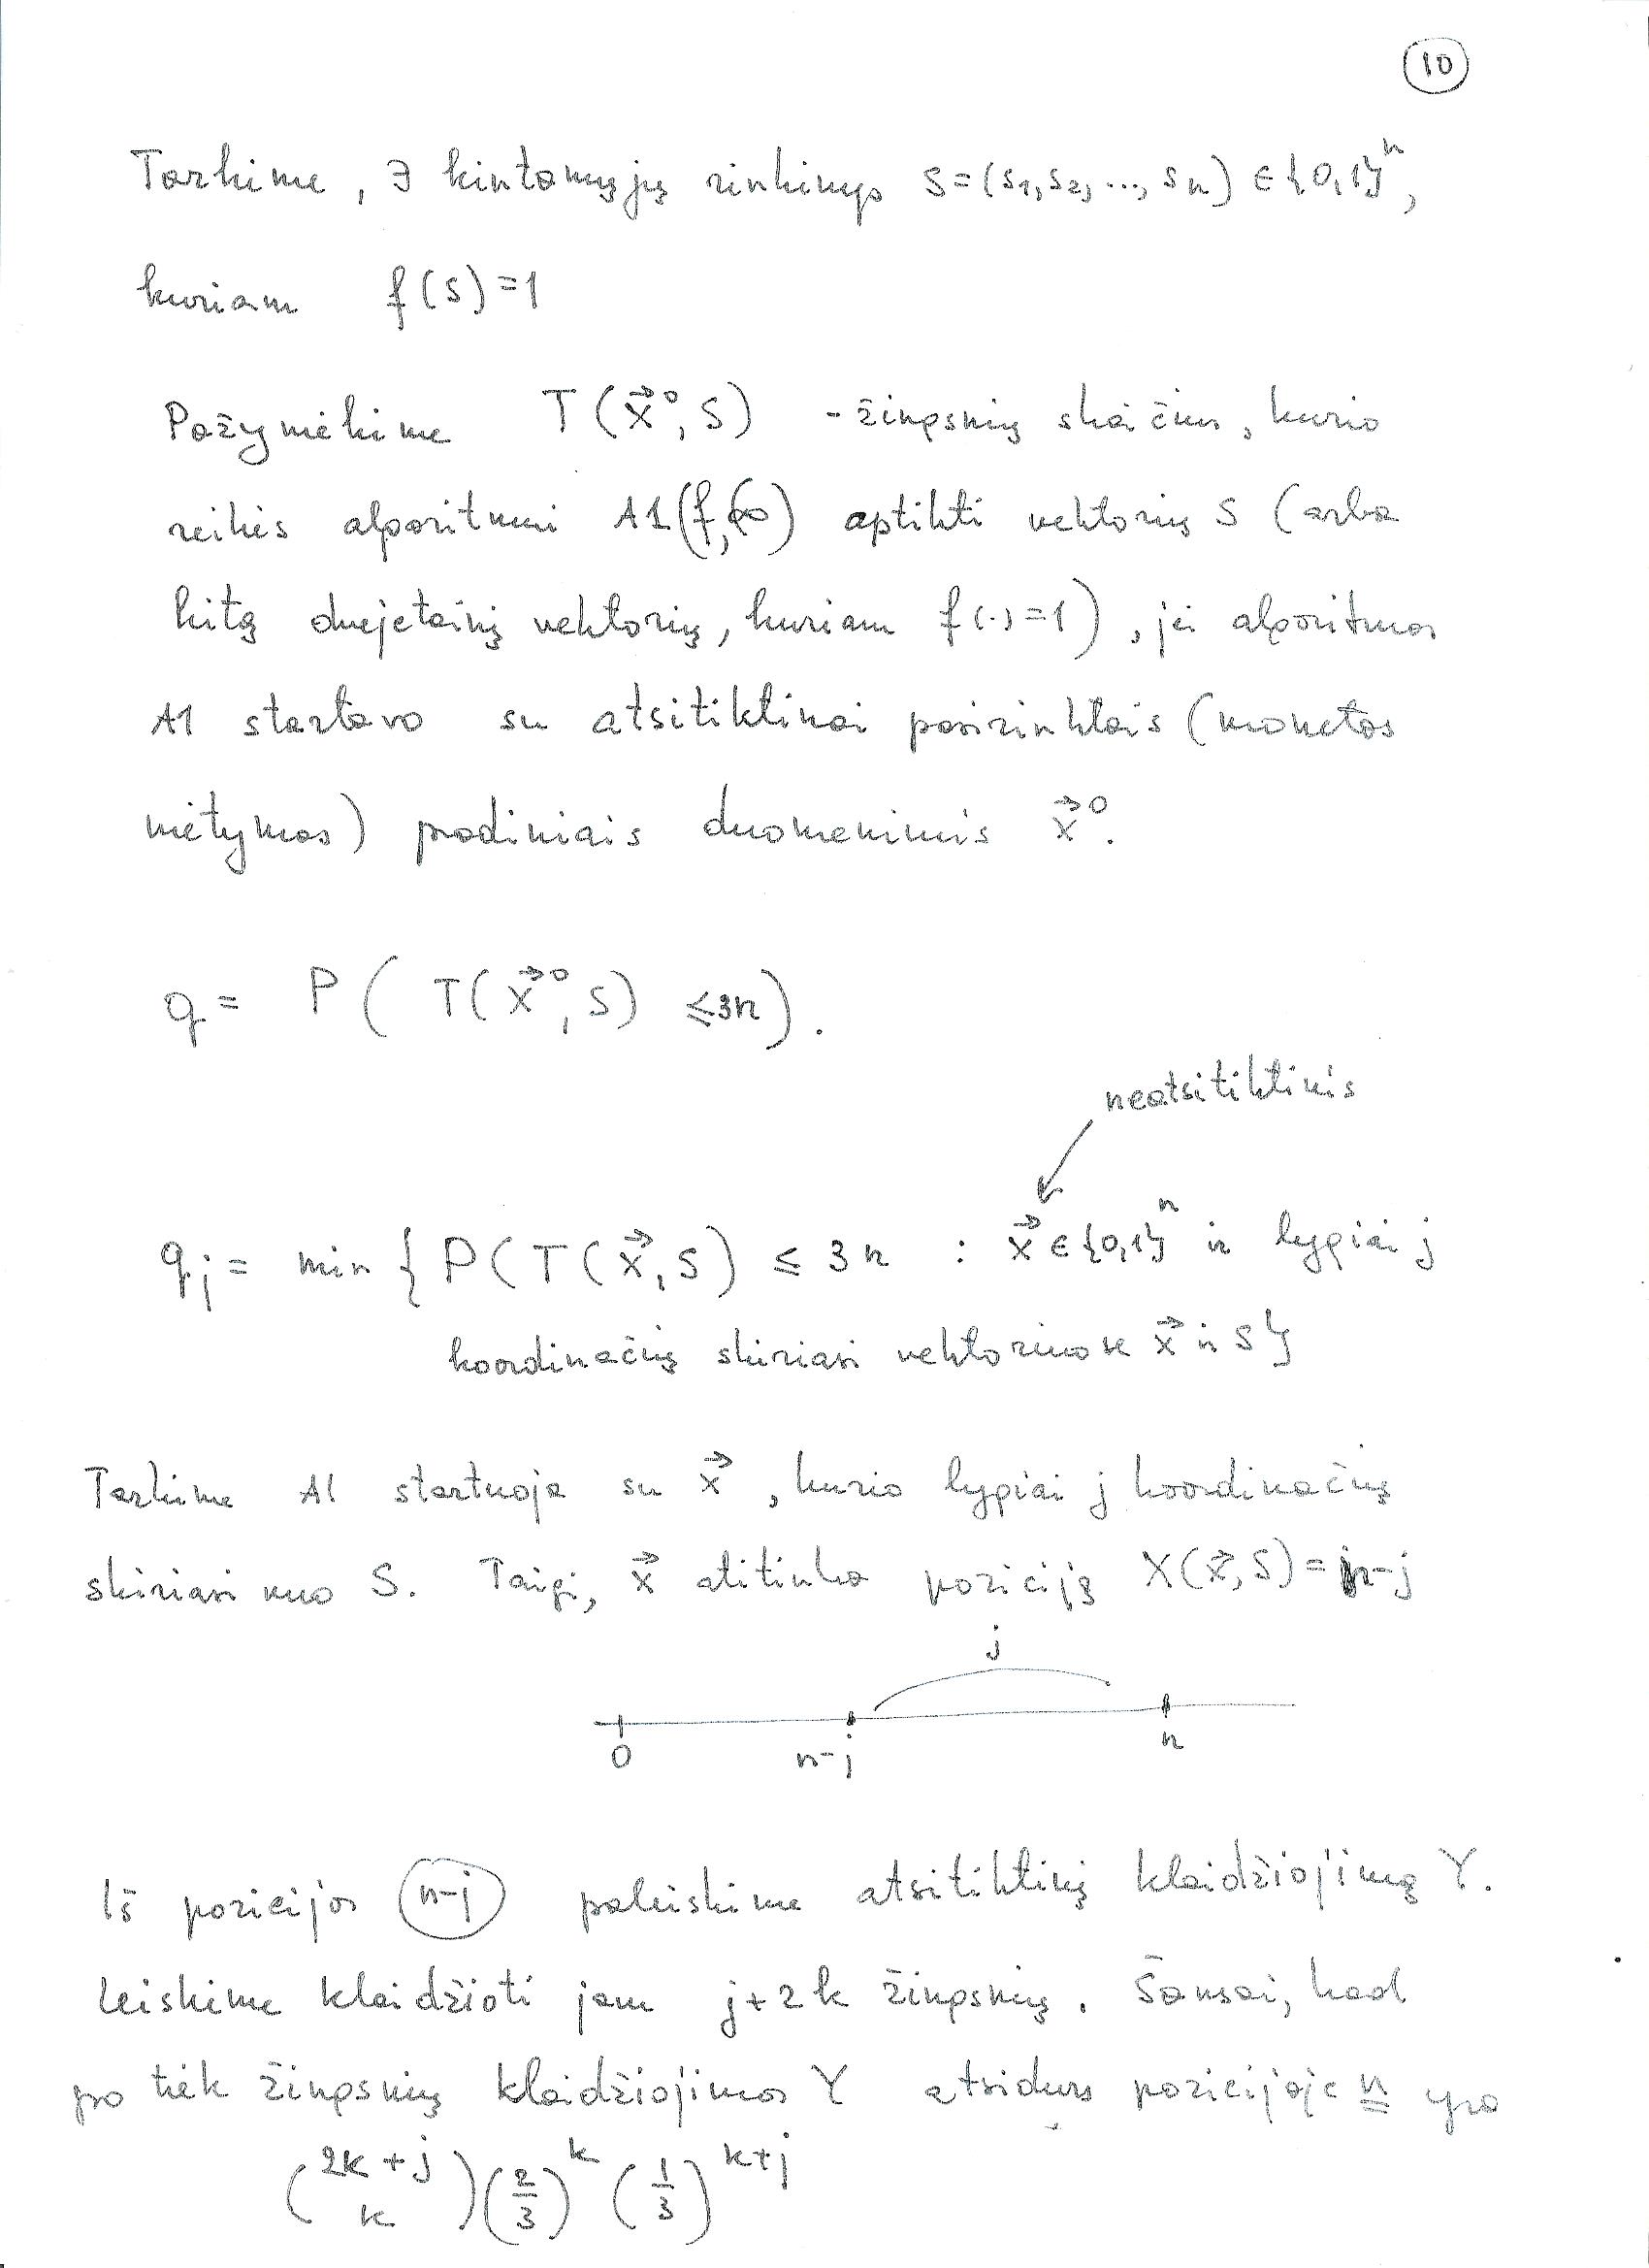 10
Tarkime, ∃ kintamųjų rinkinys S=(s₁,s₂, ..., sₙ) ∈ {0,1}ⁿ,
kuriam f(s)=1
Pažymėkime T(x⃗⁰, S) - žingsnių skaičius, kurio
reikės algoritmui A1(f,∞) aptikti vektorių S (arba
kitą dvejetainį vektorių, kuriam f(·)=1), jei algoritmas
A1 startavo su atsitiktinai pasirinktais (monetos
mėtymas) pradiniais duomenimis x⃗⁰.
q = P( T(x⃗⁰, S) ≤3n).
neatsitiktinis
qⱼ = min { P(T(x⃗, S) ≤ 3n : x⃗ ∈ {0,1}ⁿ ir lygiai j
koordinačių skiriasi vektoriuose x⃗ ir S}
Tarkime A1 startuoja su x⃗, kurio lygiai j koordinačių
skiriasi nuo S. Taigi, x⃗ atitinka poziciją X(x⃗, S)=n-j
j
0 n-j n
Iš pozicijos (n-j) paleiskime atsitiktinį klaidžiojimą Y.
Leiskime klaidžioti jam j+2k žingsnių. Šansai, kad
po tiek žingsnių klaidžiojimas Y atsidurs pozicijoje n yra
(2k+j k)(2/3)^k (1/3)^(k+j)